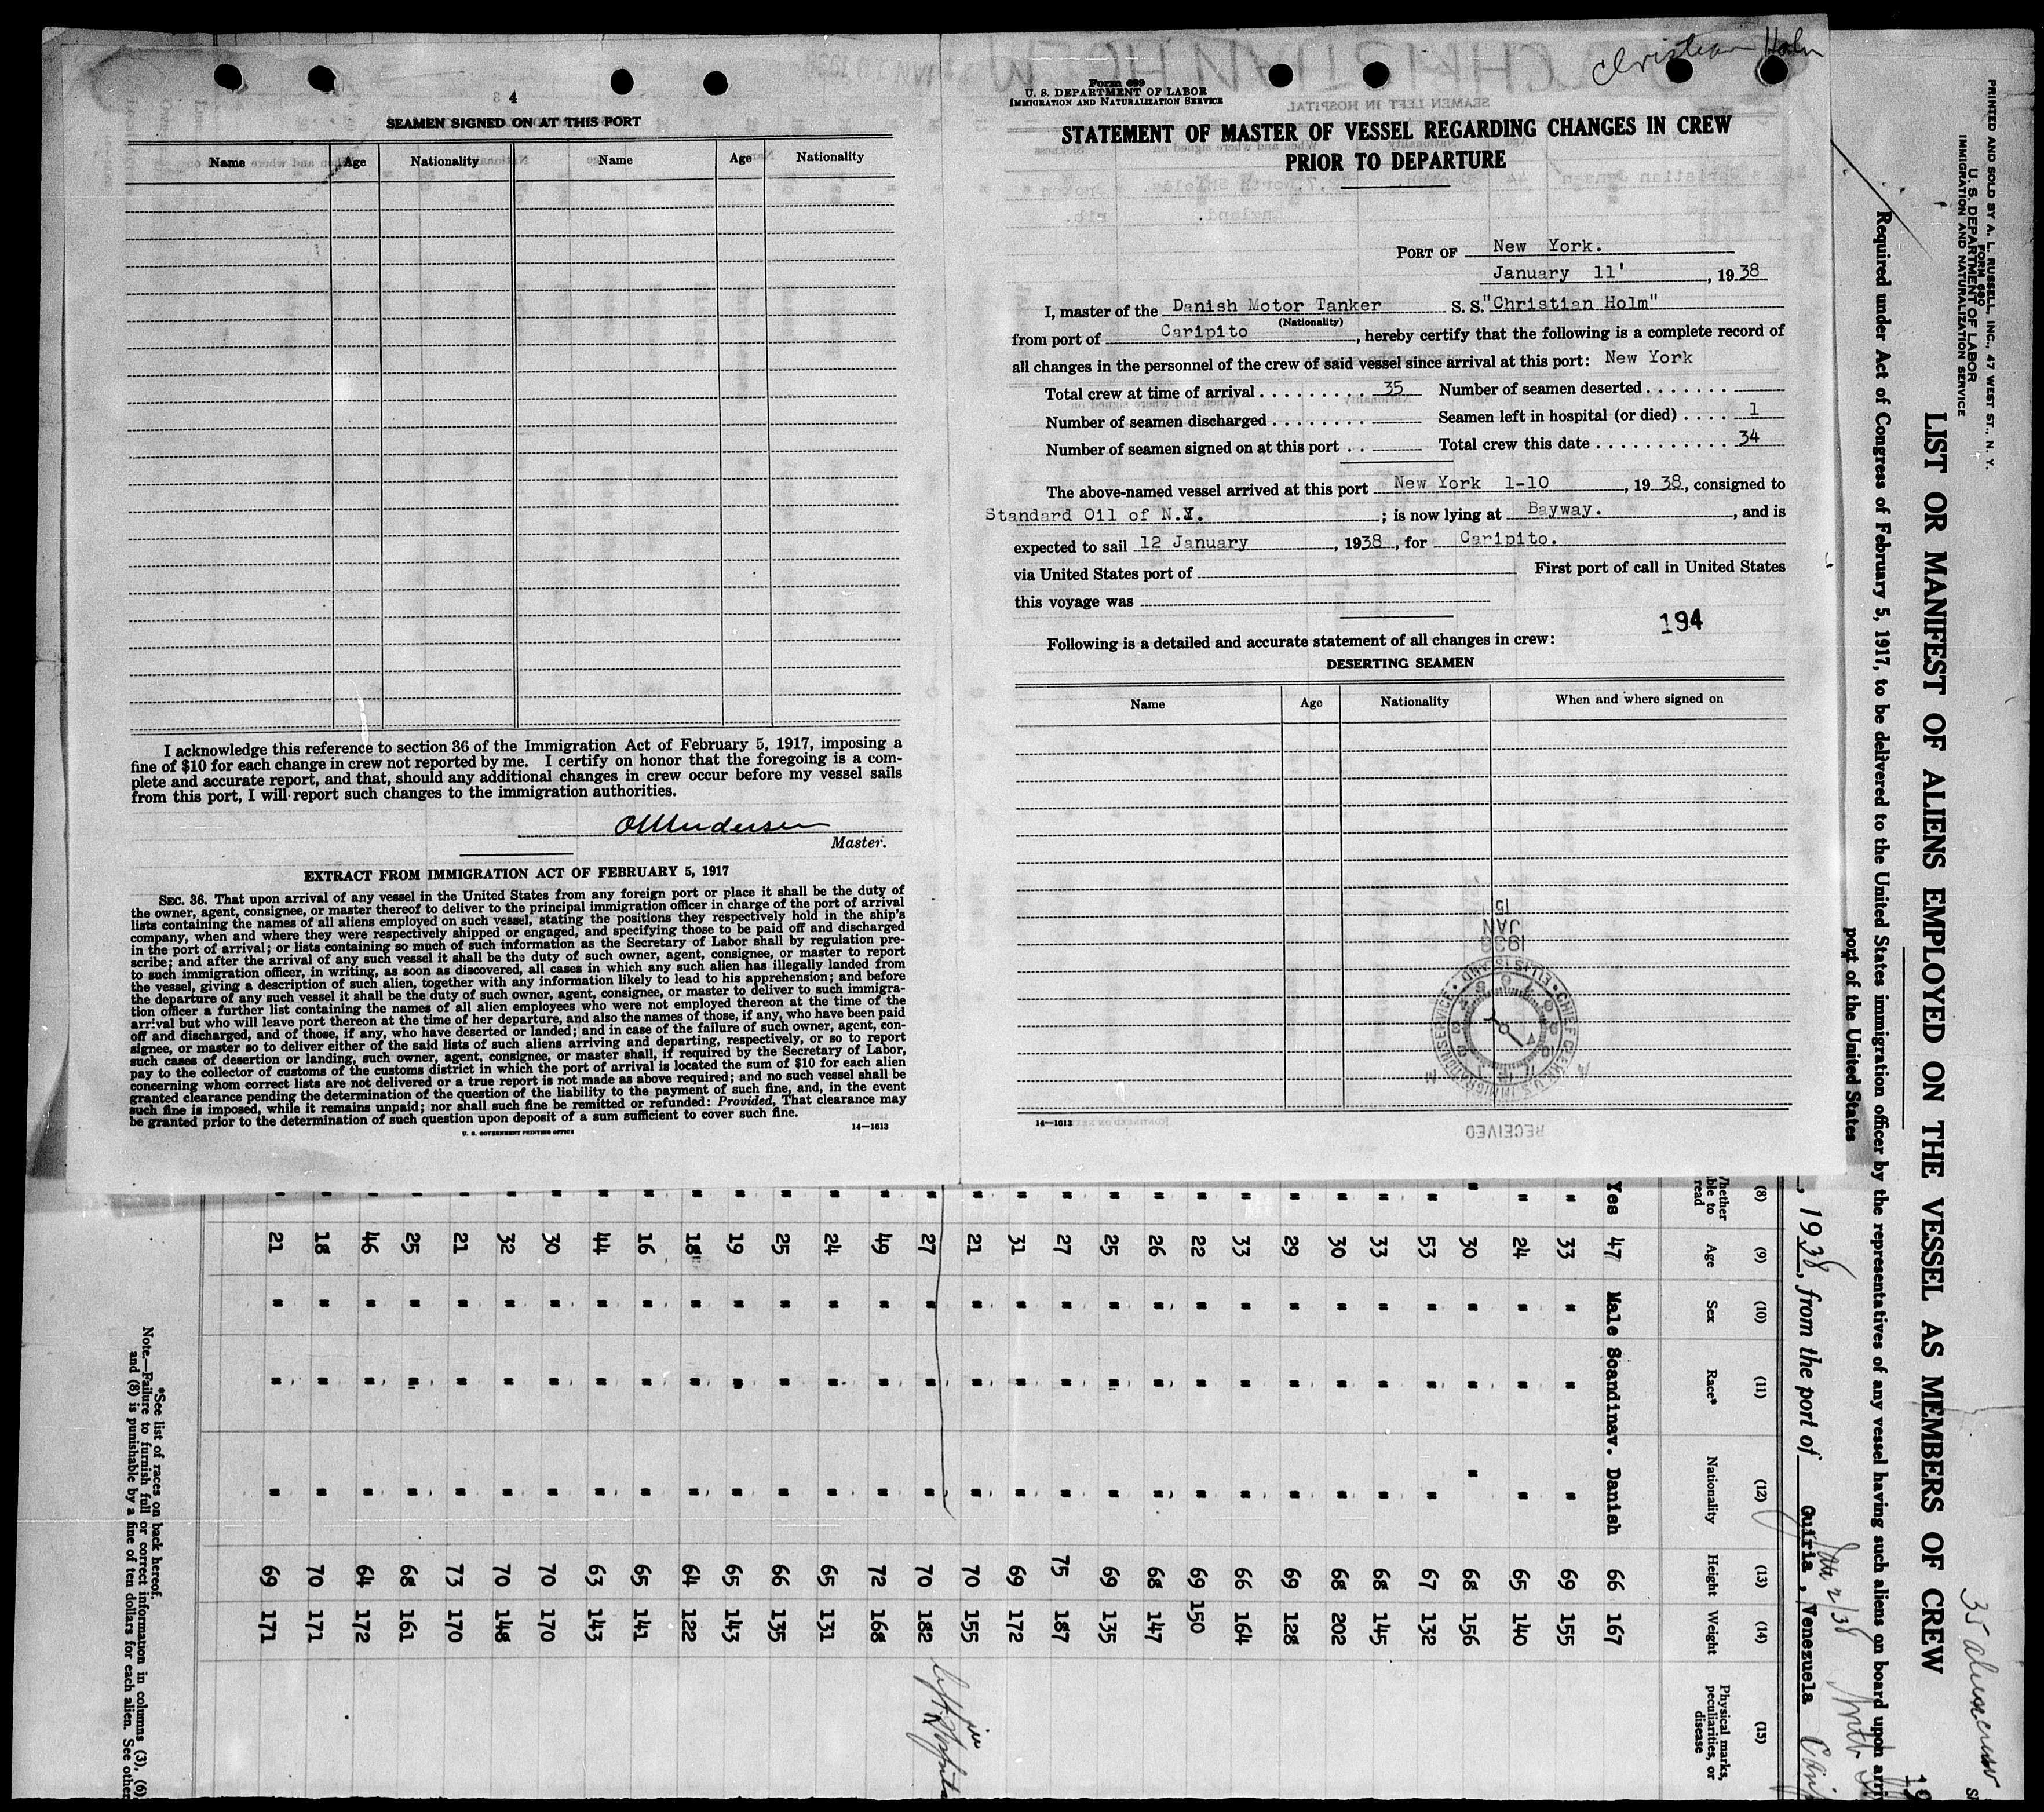 4
SEAMEN SIGNED ON AT THIS PORT
Name Age Nationality Name Age Nationality
I acknowledge this reference to section 36 of the Immigration Act of February 5, 1917, imposing a
fine of $10 for each change in crew not reported by me. I certify on honor that the foregoing is a com-
plete and accurate report, and that, should any additional changes in crew occur before my vessel sails
from this port, I will report such changes to the immigration authorities.
Master.
EXTRACT FROM IMMIGRATION ACT OF FEBRUARY 5, 1917
SEC. 36. That upon arrival of any vessel in the United States from any foreign port or place it shall be the duty of
the owner, agent, consignee, or master thereof to deliver to the principal immigration officer in charge of the port of arrival
lists containing the names of all aliens employed on such vessel, stating the positions they respectively hold in the ship's
company, when and where they were respectively shipped or engaged, and specifying those to be paid off and discharged
in the port of arrival; or lists containing so much of such information as the Secretary of Labor shall by regulation pre-
scribe; and after the arrival of any such vessel it shall be the duty of such owner, agent, consignee, or master to report
to such immigration officer, in writing, as soon as discovered, all cases in which any such alien has illegally landed from
the vessel, giving a description of such alien, together with any information likely to lead to his apprehension; and before
the departure of any such vessel it shall be the duty of such owner, agent, consignee, or master to deliver to such immigra-
tion officer a further list containing the names of all alien employees who were not employed thereon at the time of the
arrival but who will leave port thereon at the time of her departure, and also the names of those, if any, who have been paid
off and discharged, and of those, if any, who have deserted or landed; and in case of the failure of such owner, agent, con-
signee, or master so to deliver either of the said lists of such aliens arriving and departing, respectively, or so to report
such cases of desertion or landing, such owner, agent, consignee, or master shall, if required by the Secretary of Labor,
pay to the collector of customs of the customs district in which the port of arrival is located the sum of $10 for each alien
concerning whom correct lists are not delivered or a true report is not made as above required; and no such vessel shall be
granted clearance pending the determination of the question of the liability to the payment of such fine, and, in the event
such fine is imposed, while it remains unpaid; nor shall such fine be remitted or refunded: Provided, That clearance may
be granted prior to the determination of such question upon deposit of a sum sufficient to cover such fine.
U. S. GOVERNMENT PRINTING OFFICE 14—1613
Christian Holm
Form 689
U. S. DEPARTMENT OF LABOR
IMMIGRATION AND NATURALIZATION SERVICE
STATEMENT OF MASTER OF VESSEL REGARDING CHANGES IN CREW
PRIOR TO DEPARTURE
PORT OF New York.
January 11', 1938
I, master of the Danish Motor Tanker S. S. "Christian Holm"
(Nationality)
from port of Caripito, hereby certify that the following is a complete record of
all changes in the personnel of the crew of said vessel since arrival at this port: New York
Total crew at time of arrival . . . . . . . . . 35 Number of seamen deserted . . . . . . .
Number of seamen discharged . . . . . . . . Seamen left in hospital (or died) . . . . 1
Number of seamen signed on at this port . . Total crew this date . . . . . . . . . . . . 34
The above-named vessel arrived at this port New York 1-10, 1938, consigned to
Standard Oil of N.Y. ; is now lying at Bayway. , and is
expected to sail 12 January, 1938, for Caripito.
via United States port of First port of call in United States
this voyage was
194
Following is a detailed and accurate statement of all changes in crew:
DESERTING SEAMEN
Name Age Nationality When and where signed on
15
JAN
1938
CHIEF CLERK U.S. IMMIGRATION SERVICE • ELLIS ISLAND
RECEIVED
14—1613
PRINTED AND SOLD BY A. L. RUSSELL, INC., 47 WEST ST., N. Y.
FORM 680
U. S. DEPARTMENT OF LABOR
IMMIGRATION AND NATURALIZATION SERVICE
35 alien crew
LIST OR MANIFEST OF ALIENS EMPLOYED ON THE VESSEL AS MEMBERS OF CREW
Required under Act of Congress of February 5, 1917, to be delivered to the United States immigration officer by the representatives of any vessel having such aliens on board upon arri
port of the United States
, 1938, from the port of Guiria, Venezuela
Jan 2/38
(8) (9) (10) (11) (12) (13) (14) (15)
Whether able to read Age Sex Race* Nationality Height Weight Physical marks, peculiarities, or disease
Yes 47 Male Scandinav. Danish 66 167
" 33 " " " 69 155
" 24 " " " 65 140
" 30 " " " 68 156
" 53 " " " 67 132
" 33 " " " 68 145
" 30 " " " 68 202
" 29 " " " 69 128
" 33 " " " 66 164
" 22 " " " 69 150
" 26 " " " 68 147
" 25 " " " 69 135
" 27 " " " 75 187
" 31 " " " 69 172
" 21 " " " 70 155
" 27 " " " 70 182 left in Hospital
" 49 " " " 72 168
" 24 " " " 65 131
" 25 " " " 66 135
" 19 " " " 65 143
" 18 " " " 64 122
" 16 " " " 65 141
" 44 " " " 63 143
" 30 " " " 70 170
" 32 " " " 70 148
" 21 " " " 73 170
" 25 " " " 68 161
" 46 " " " 64 172
" 18 " " " 70 171
" 21 " " " 69 171
*See list of races on back hereof.
Note.—Failure to furnish full or correct information in columns (3), (6),
and (8) is punishable by a fine of ten dollars for each alien. See other